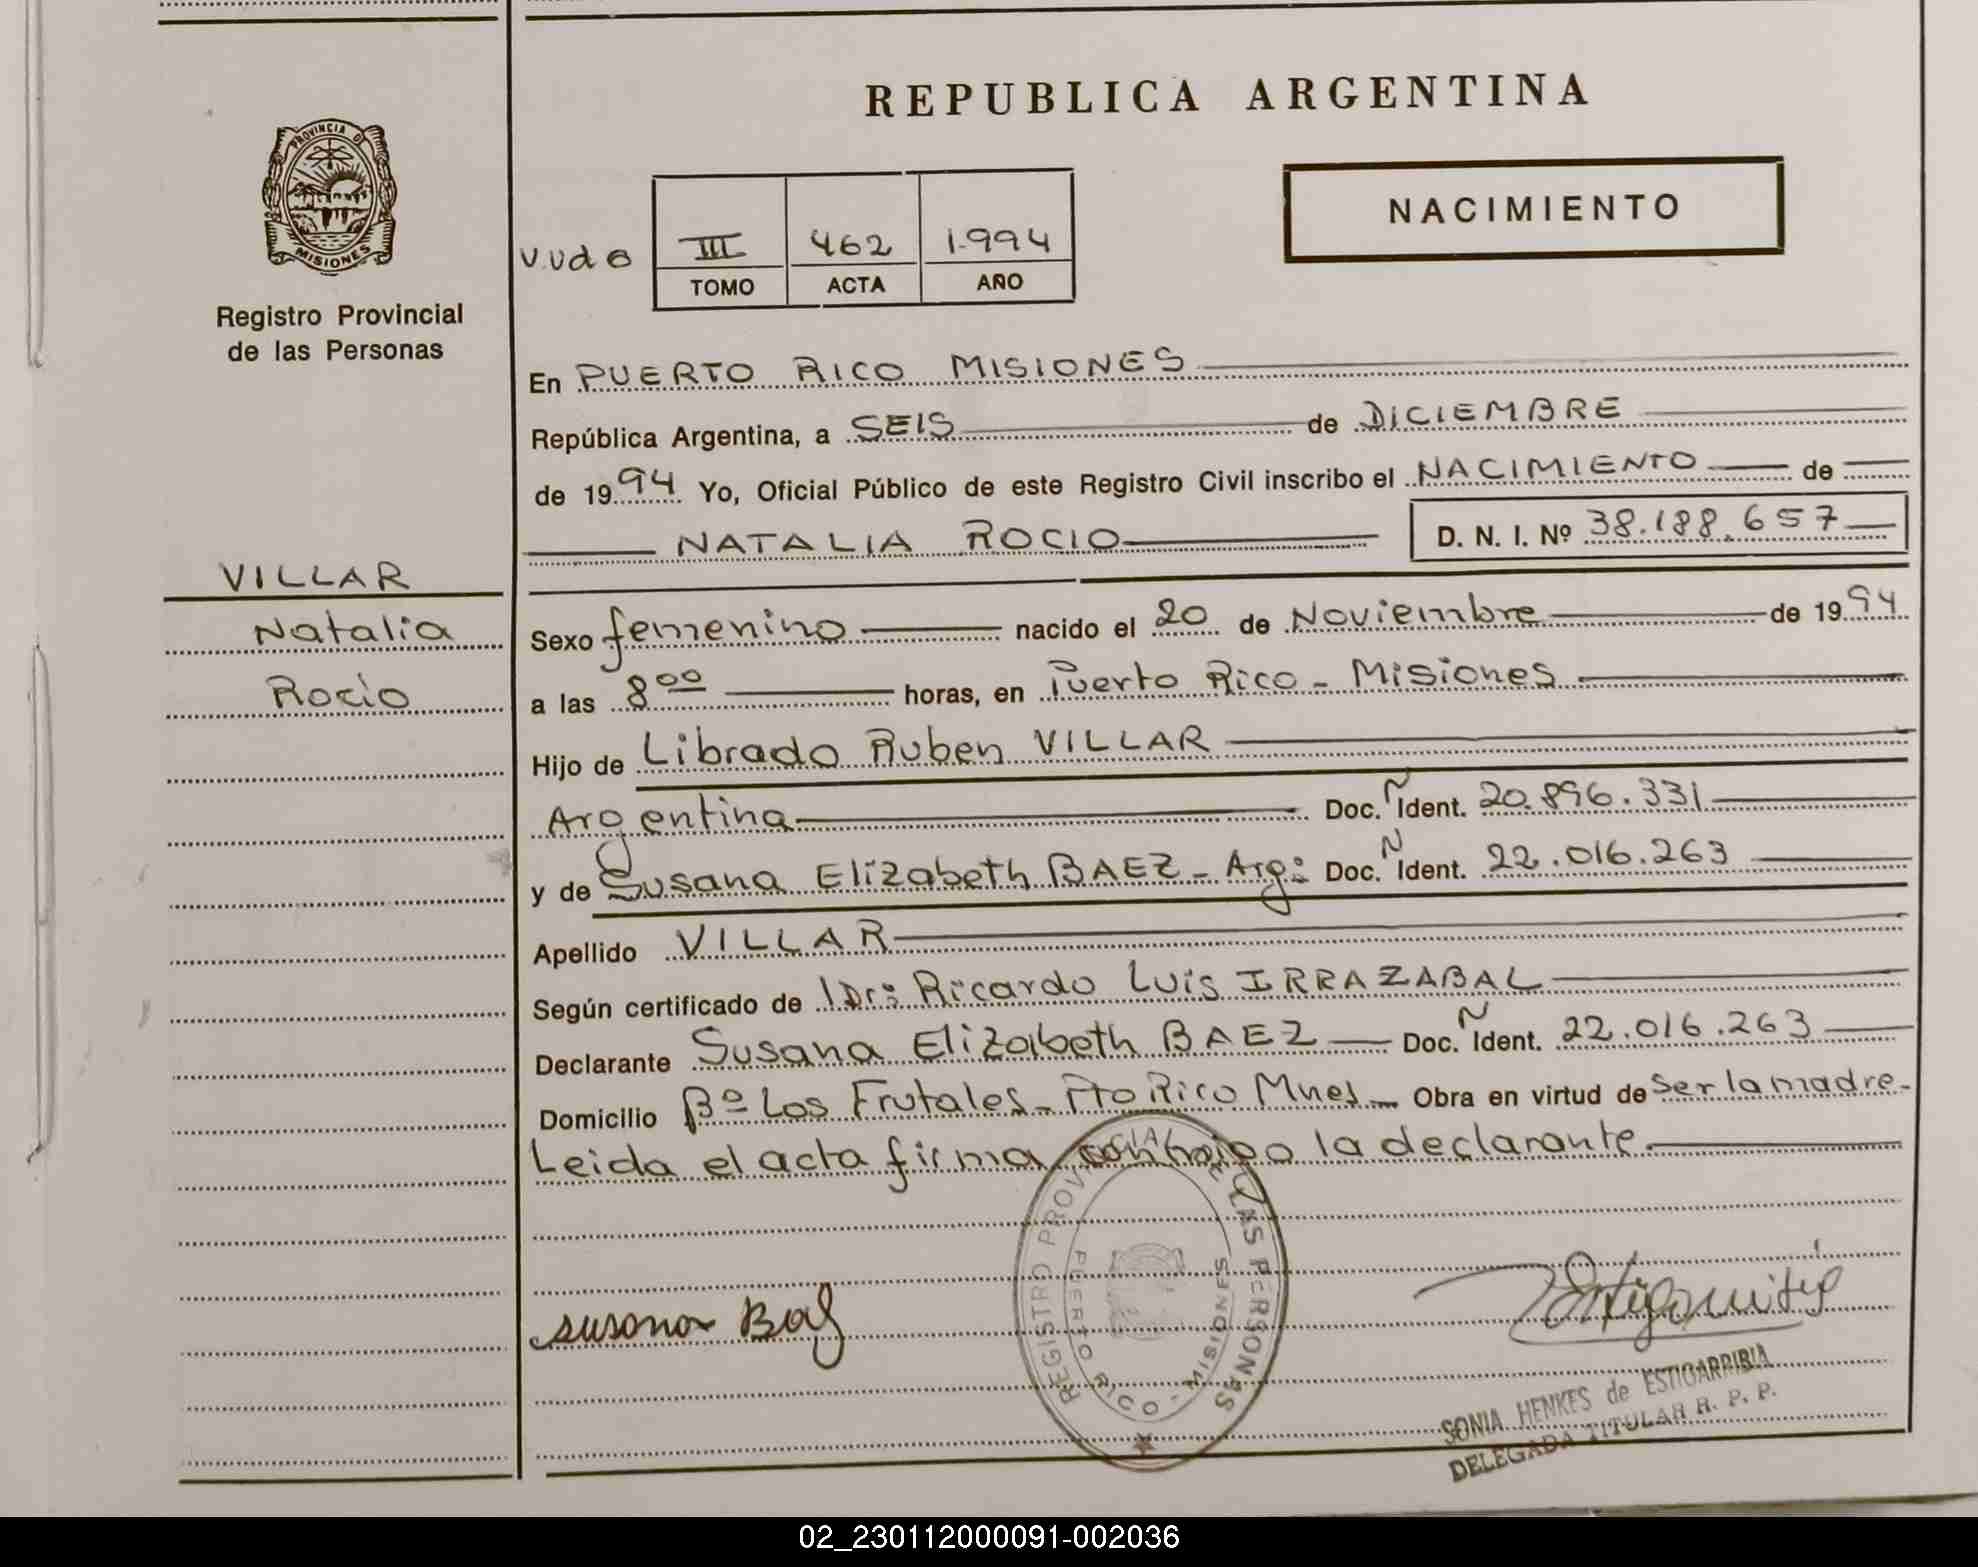 REPUBLICA ARGENTINA
PROVINCIA D
MISIONES
Registro Provincial
de las Personas
NACIMIENTO
III 462 1.994
TOMO ACTA AÑO
En PUERTO RICO MISIONES
República Argentina, a SEIS de DICIEMBRE
de 1994 Yo, Oficial Público de este Registro Civil inscribo el NACIMIENTO de
NATALIA ROCIO D. N. I. Nº 38.188.657
VILLAR
Natalia
Rocio
Sexo femenino nacido el 20 de Noviembre de 1994
a las 8 00 horas, en Puerto Rico - Misiones
Hijo de Librado Ruben VILLAR
Argentina Doc. N Ident. 20.896.331
y de Susana Elizabeth BAEZ - Arg: Doc. N Ident. 22.016.263
Apellido VILLAR
Según certificado de Dr: Ricardo Luis IRRAZABAL
Declarante Susana Elizabeth BAEZ Doc. N Ident. 22.016.263
Domicilio Bº Los Frutales - Pto Rico Mnes - Obra en virtud de ser la madre.
Leida el acta firma conmigo la declarante.
REGISTRO PROVINCIAL DE LAS PERSONAS
PUERTO RICO - MISIONES
susana
SONIA HENKES de ESTIGARRIBIA
DELEGADA TITULAR R. P. P.
02_230112000091-002036